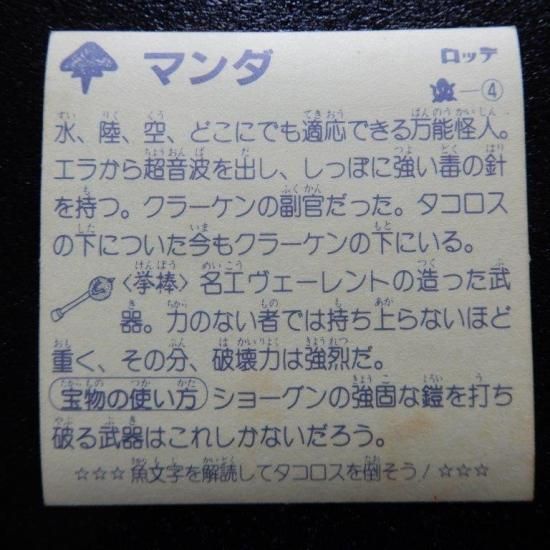 マンダ
ロッテ
―④
水、陸、空、どこにでも適応できる万能怪人。
エラから超音波を出し、しっぽに強い毒の針
を持つ。クラーケンの副官だった。タコロス
の下についた今もクラーケンの下にいる。
〈拳棒〉名工ヴェーレントの造った武
器。力のない者では持ち上らないほど
重く、その分、破壊力は強烈だ。
宝物の使い方 ショーグンの強固な鎧を打ち
破る武器はこれしかないだろう。
☆☆☆魚文字を解読してタコロスを倒そう!☆☆☆